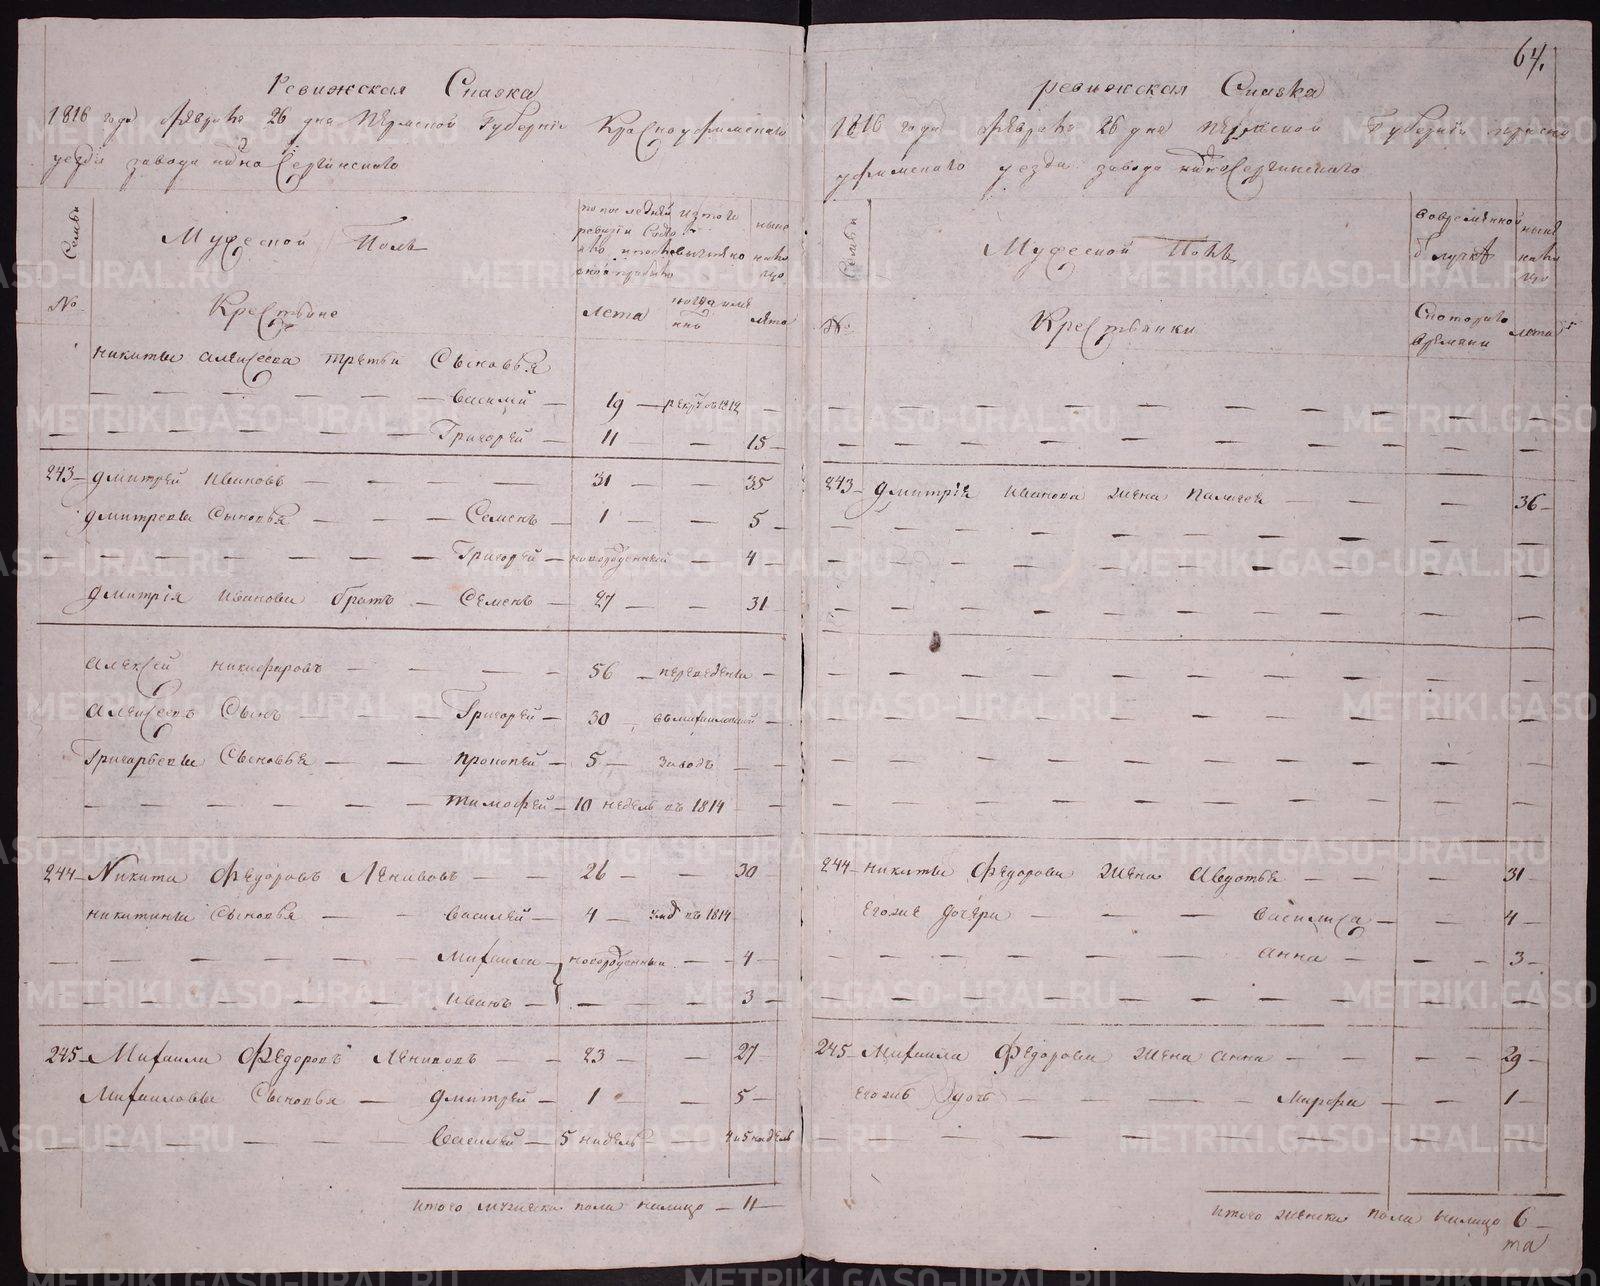 64.
Ревижская Сказка
1816 года февраля 26 дня Пермской Губернїи Красноуфимскаго
уезда завода нижно Сергинскаго
Семьи
Мужеской Полъ
по последней ревизїи Состояло и после оной прибыло
изтого выбыло
ныне налицо
№
Крестьяне
лета
когда имянно
лета
никиты алексеева третьи Сыновья
— — — — — — Василий — 19 — рекрут въ 1812 —
— — — — — — Григорей — 11 — — 15
243 Дмитрей Ивановъ — — — — 31 — — 35
Дмитревы Сыновья — — — Семенъ — 1 — — 5
— — — — — — Григорей — новорожденный — 4
Дмитрїя Иванова братъ — Семенъ — 27 — — 31
алексей никифоровъ — — — — 56 — переведены —
алексеевъ Сынъ — — — Григорей — 30 — въ михайловской —
Григорьевы Сыновья — — Прокопей — 5 — заводъ —
— — — — — — тимофей — 10 недель въ 1814 —
244 Никита Федоровъ Ленивовъ — — 26 — — 30
никитины Сыновья — — Василей — 4 — въ 1814
— — — — — — Михаила — новорожденныи — 4
— — — — — — Иванъ — — — 3
245 Михаила Федоровъ Ленивовъ — — 23 — — 27
Михаиловы Сыновья — Дмитрей — 1 — — 5
— — — — — — Василей — 5 недель — — 4 и 5 недель
итого мужеска пола налицо — 11
Ревижская Сказка
1816 года февраля 26 дня Пермской Губернїи красно
уфимскаго уезда завода нижно Сергинскаго
Семьи
Мужеской Полъ
во временной отлучке
ныне налицо
№
Крестьянки
Скотораго времяни
лета
243 Дмитрїя Иванова жена Палагея — — — 36
244 никиты Федорова жена Авдотья — — — 31
Егоже дочери — — Василиса — — 4
— — — — — — Анна — — 3
245 Михаила Федорова жена Анна — — — 29
Егожъ дочь — — — Марфа — — 1
итого женска пола налицо 6
та
METRIKI.GASO-URAL.RU